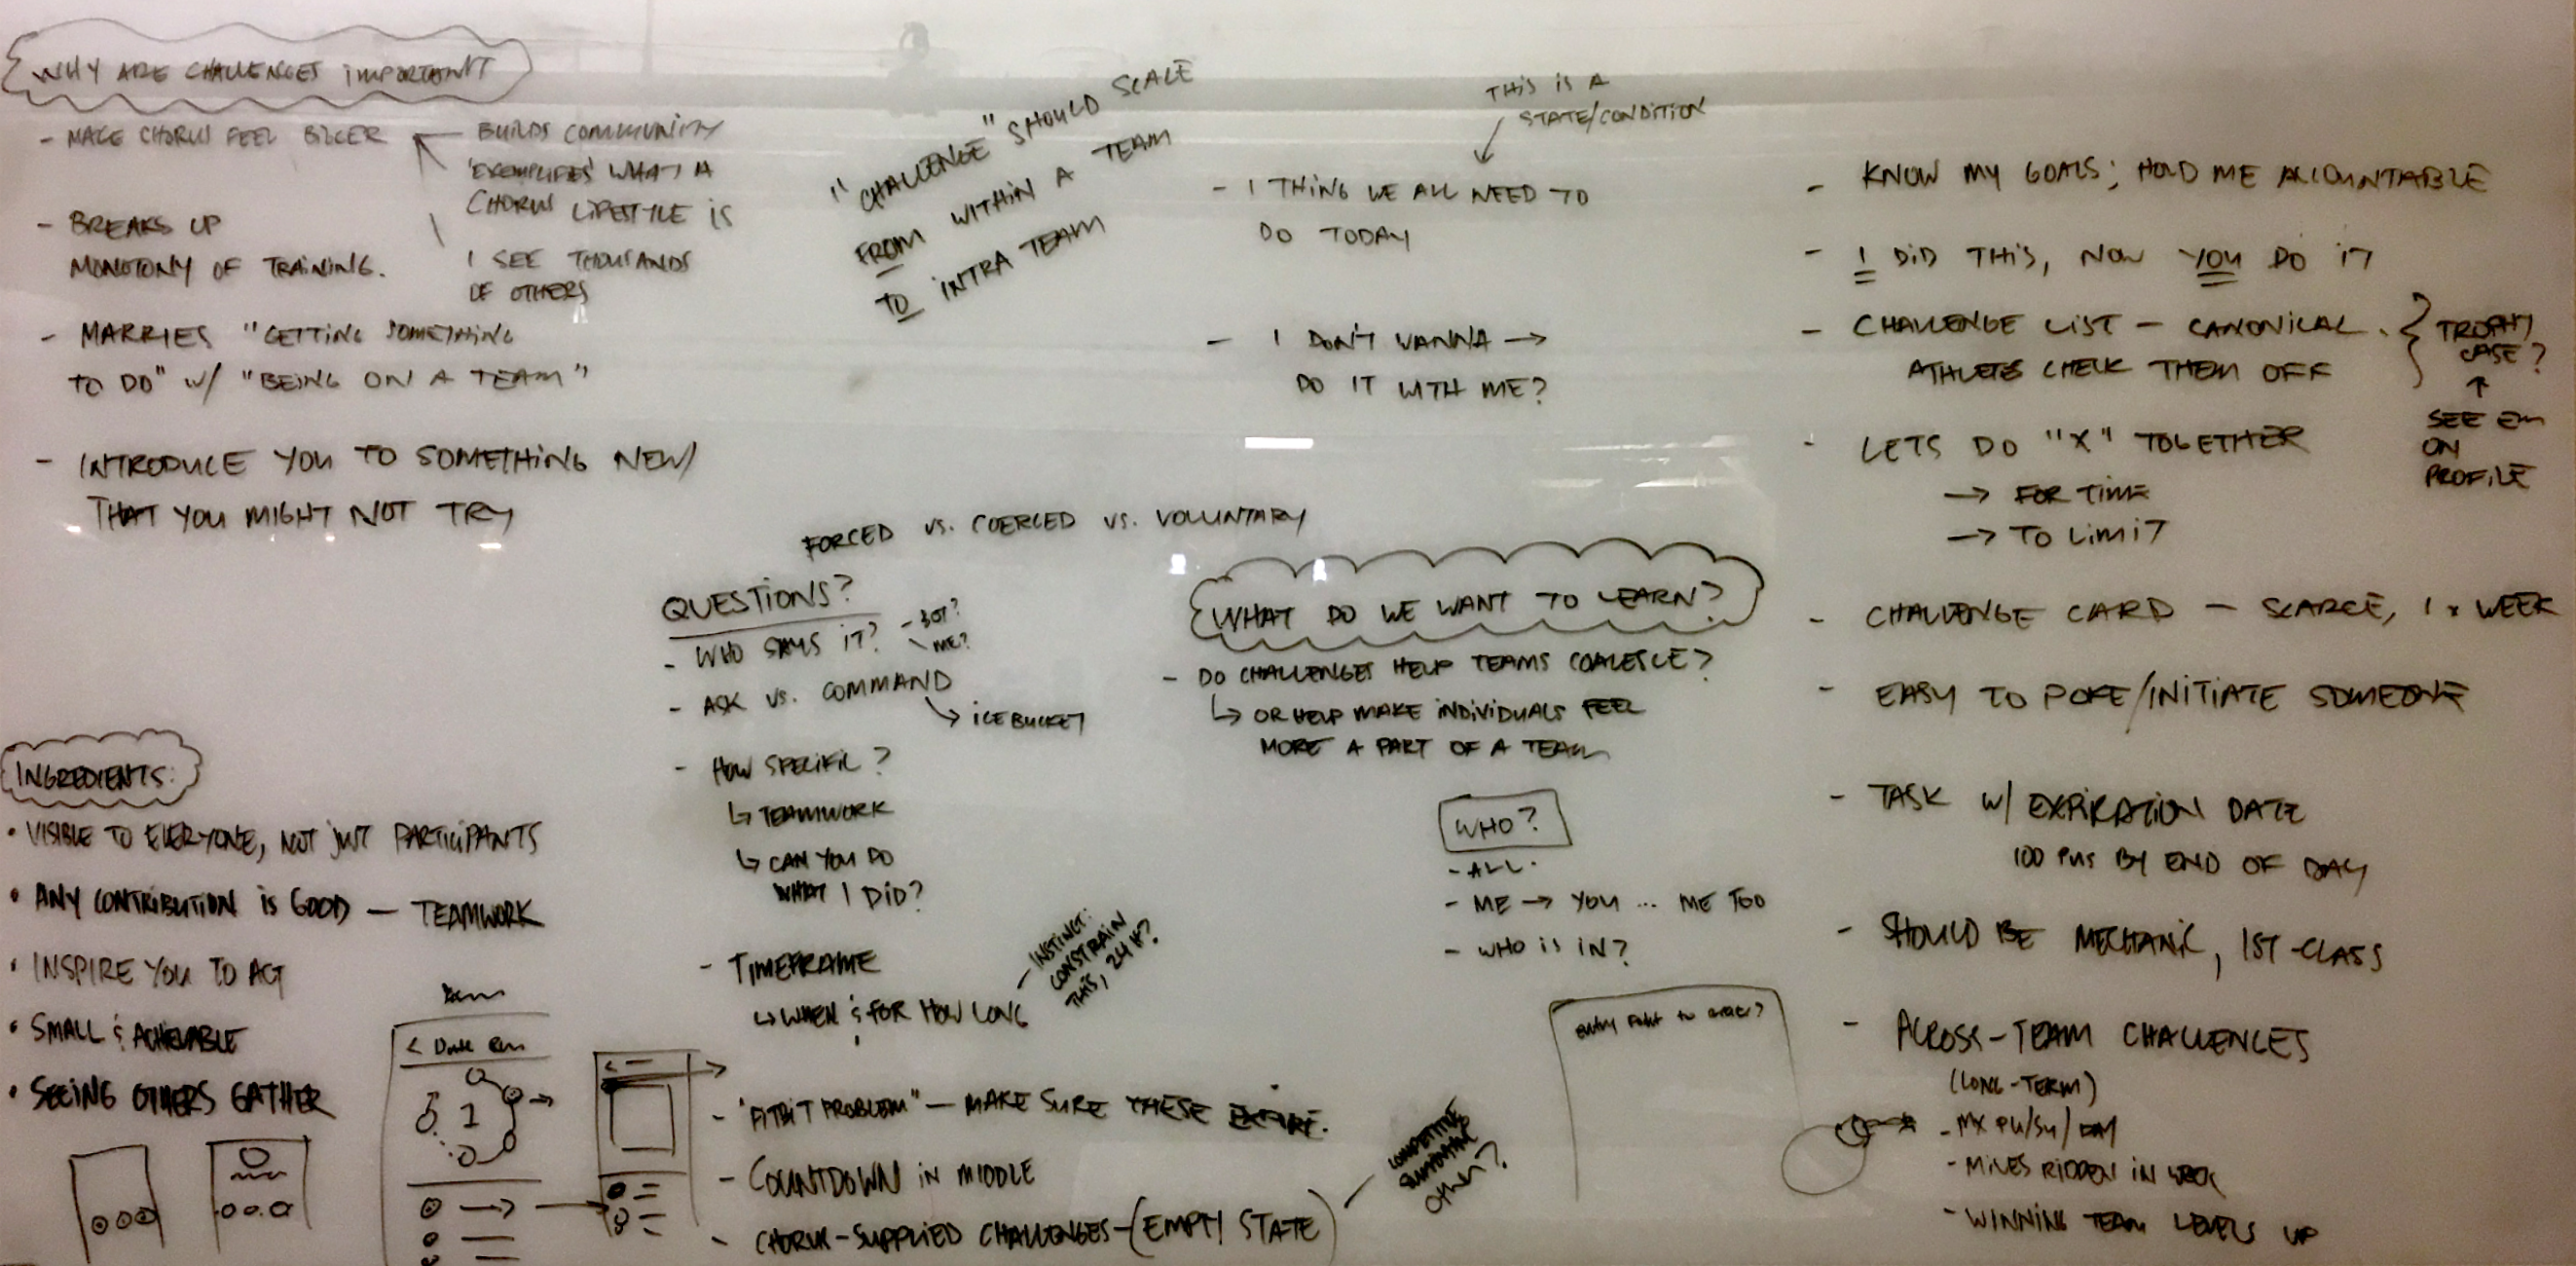 WHY ARE CHALLENGES IMPORTANT
- MAKE CHORUS FEEL BIGGER
BUILDS COMMUNITY
'EXEMPLIFIES' WHAT A
CHORUS LIFESTYLE IS
I SEE THOUSANDS
OF OTHERS
- BREAKS UP
MONOTONY OF TRAINING.
- MARRIES "GETTING SOMETHING
TO DO" W/ "BEING ON A TEAM"
- INTRODUCE YOU TO SOMETHING NEW/
THAT YOU MIGHT NOT TRY
"CHALLENGE" SHOULD SCALE
FROM WITHIN A TEAM
TO INTRA TEAM
THIS IS A
STATE/CONDITION
- 1 THING WE ALL NEED TO
DO TODAY
- I DON'T WANNA →
DO IT WITH ME?
FORCED VS. COERCED VS. VOLUNTARY
QUESTIONS?
- WHO SAYS IT?
- BOT?
ME?
- ASK VS. COMMAND
↳ ICE BUCKET
- HOW SPECIFIC?
↳ TEAMWORK
↳ CAN YOU DO
WHAT I DID?
- TIMEFRAME
↳ WHEN & FOR HOW LONG
- INSTINCT:
CONSTRAIN
THIS, 24 H?
- "FITBIT PROBLEM" — MAKE SURE THESE EXPIRE.
- COUNTDOWN IN MIDDLE
- CHORUS-SUPPLIED CHALLENGES - (EMPTY STATE)
OTHER?
WHAT DO WE WANT TO LEARN?
- DO CHALLENGES HELP TEAMS COALESCE?
↳ OR HELP MAKE INDIVIDUALS FEEL
MORE A PART OF A TEAM
WHO?
- ALL.
- ME → YOU ... ME TOO
- WHO IS IN?
entry point to
INGREDIENTS:
• VISIBLE TO EVERYONE, NOT JUST PARTICIPANTS
• ANY CONTRIBUTION IS GOOD — TEAMWORK
• INSPIRE YOU TO ACT
• SMALL & ACHIEVABLE
• SEEING OTHERS GATHER
1
- KNOW MY GOALS; HOLD ME ACCOUNTABLE
- I DID THIS, NOW YOU DO IT
- CHALLENGE LIST — CANONICAL.
ATHLETES CHECK THEM OFF
TROPHY
CASE?
↑
SEE EM
ON
PROFILE
- LETS DO "X" TOGETHER
→ FOR TIME
→ TO LIMIT
- CHALLENGE CARD — SCARCE, 1 x WEEK
- EASY TO POKE/INITIATE SOMEONE
- TASK W/ EXPIRATION DATE
100 PUS BY END OF DAY
- SHOULD BE MECHANIC, 1ST-CLASS
- ACROSS-TEAM CHALLENGES
(LONG-TERM)
- MX PU/SU/DAY
- MILES RIDDEN IN WEEK
- WINNING TEAM LEVELS UP